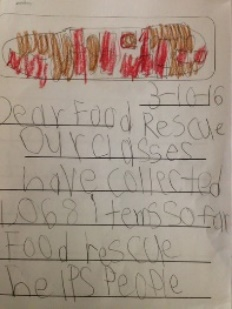 3-10-16
Dear Food Rescue
Our classes
have collected
1,068 items so far
Food rescue
helps People